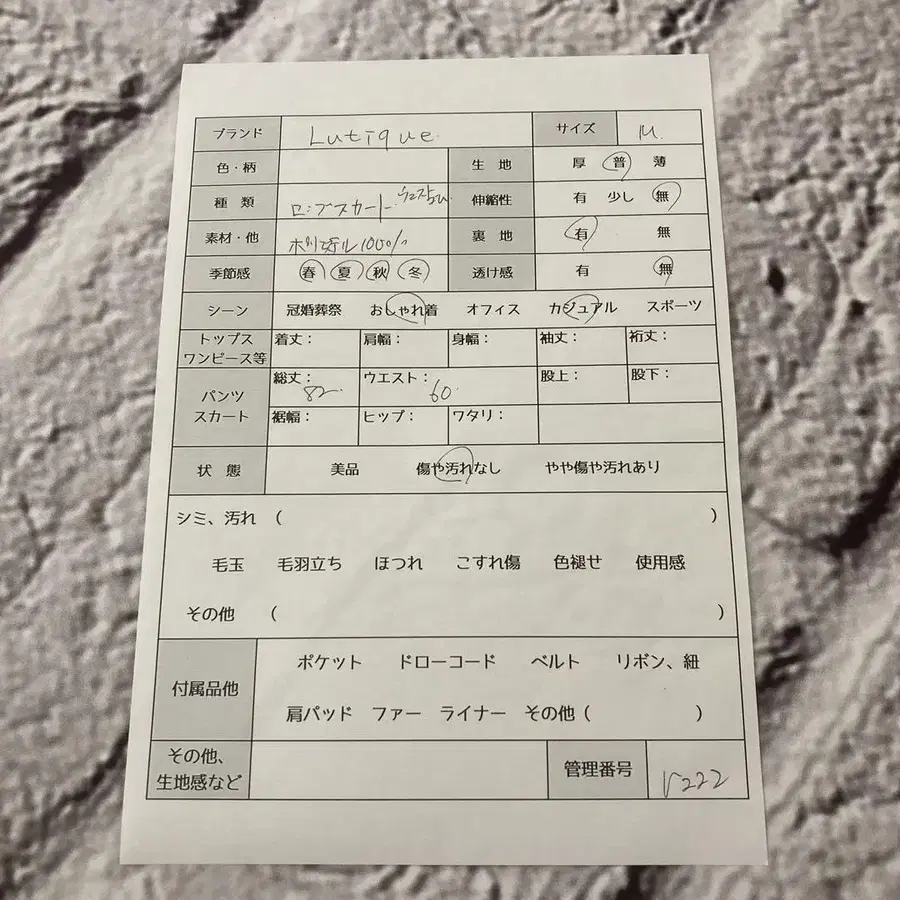 ブランド Lutique サイズ M
色・柄 生 地 厚 普 薄
種 類 ロングスカート 伸縮性 有 少し 無
素材・他 ポリエステル100% 裏 地 有 無
季節感 春 夏 秋 冬 透け感 有 無
シーン 冠婚葬祭 おしゃれ着 オフィス カジュアル スポーツ
トップス
ワンピース等 着丈： 肩幅： 身幅： 袖丈： 裄丈：
パンツ
スカート 総丈：82 ウエスト：60 股上： 股下：
裾幅： ヒップ： ワタリ：
状 態 美品 傷や汚れなし やや傷や汚れあり
シミ、汚れ （ ）
毛玉 毛羽立ち ほつれ こすれ傷 色褪せ 使用感
その他 （ ）
付属品他 ポケット ドローコード ベルト リボン、紐
肩パッド ファー ライナー その他（ ）
その他、
生地感など 管理番号 V222